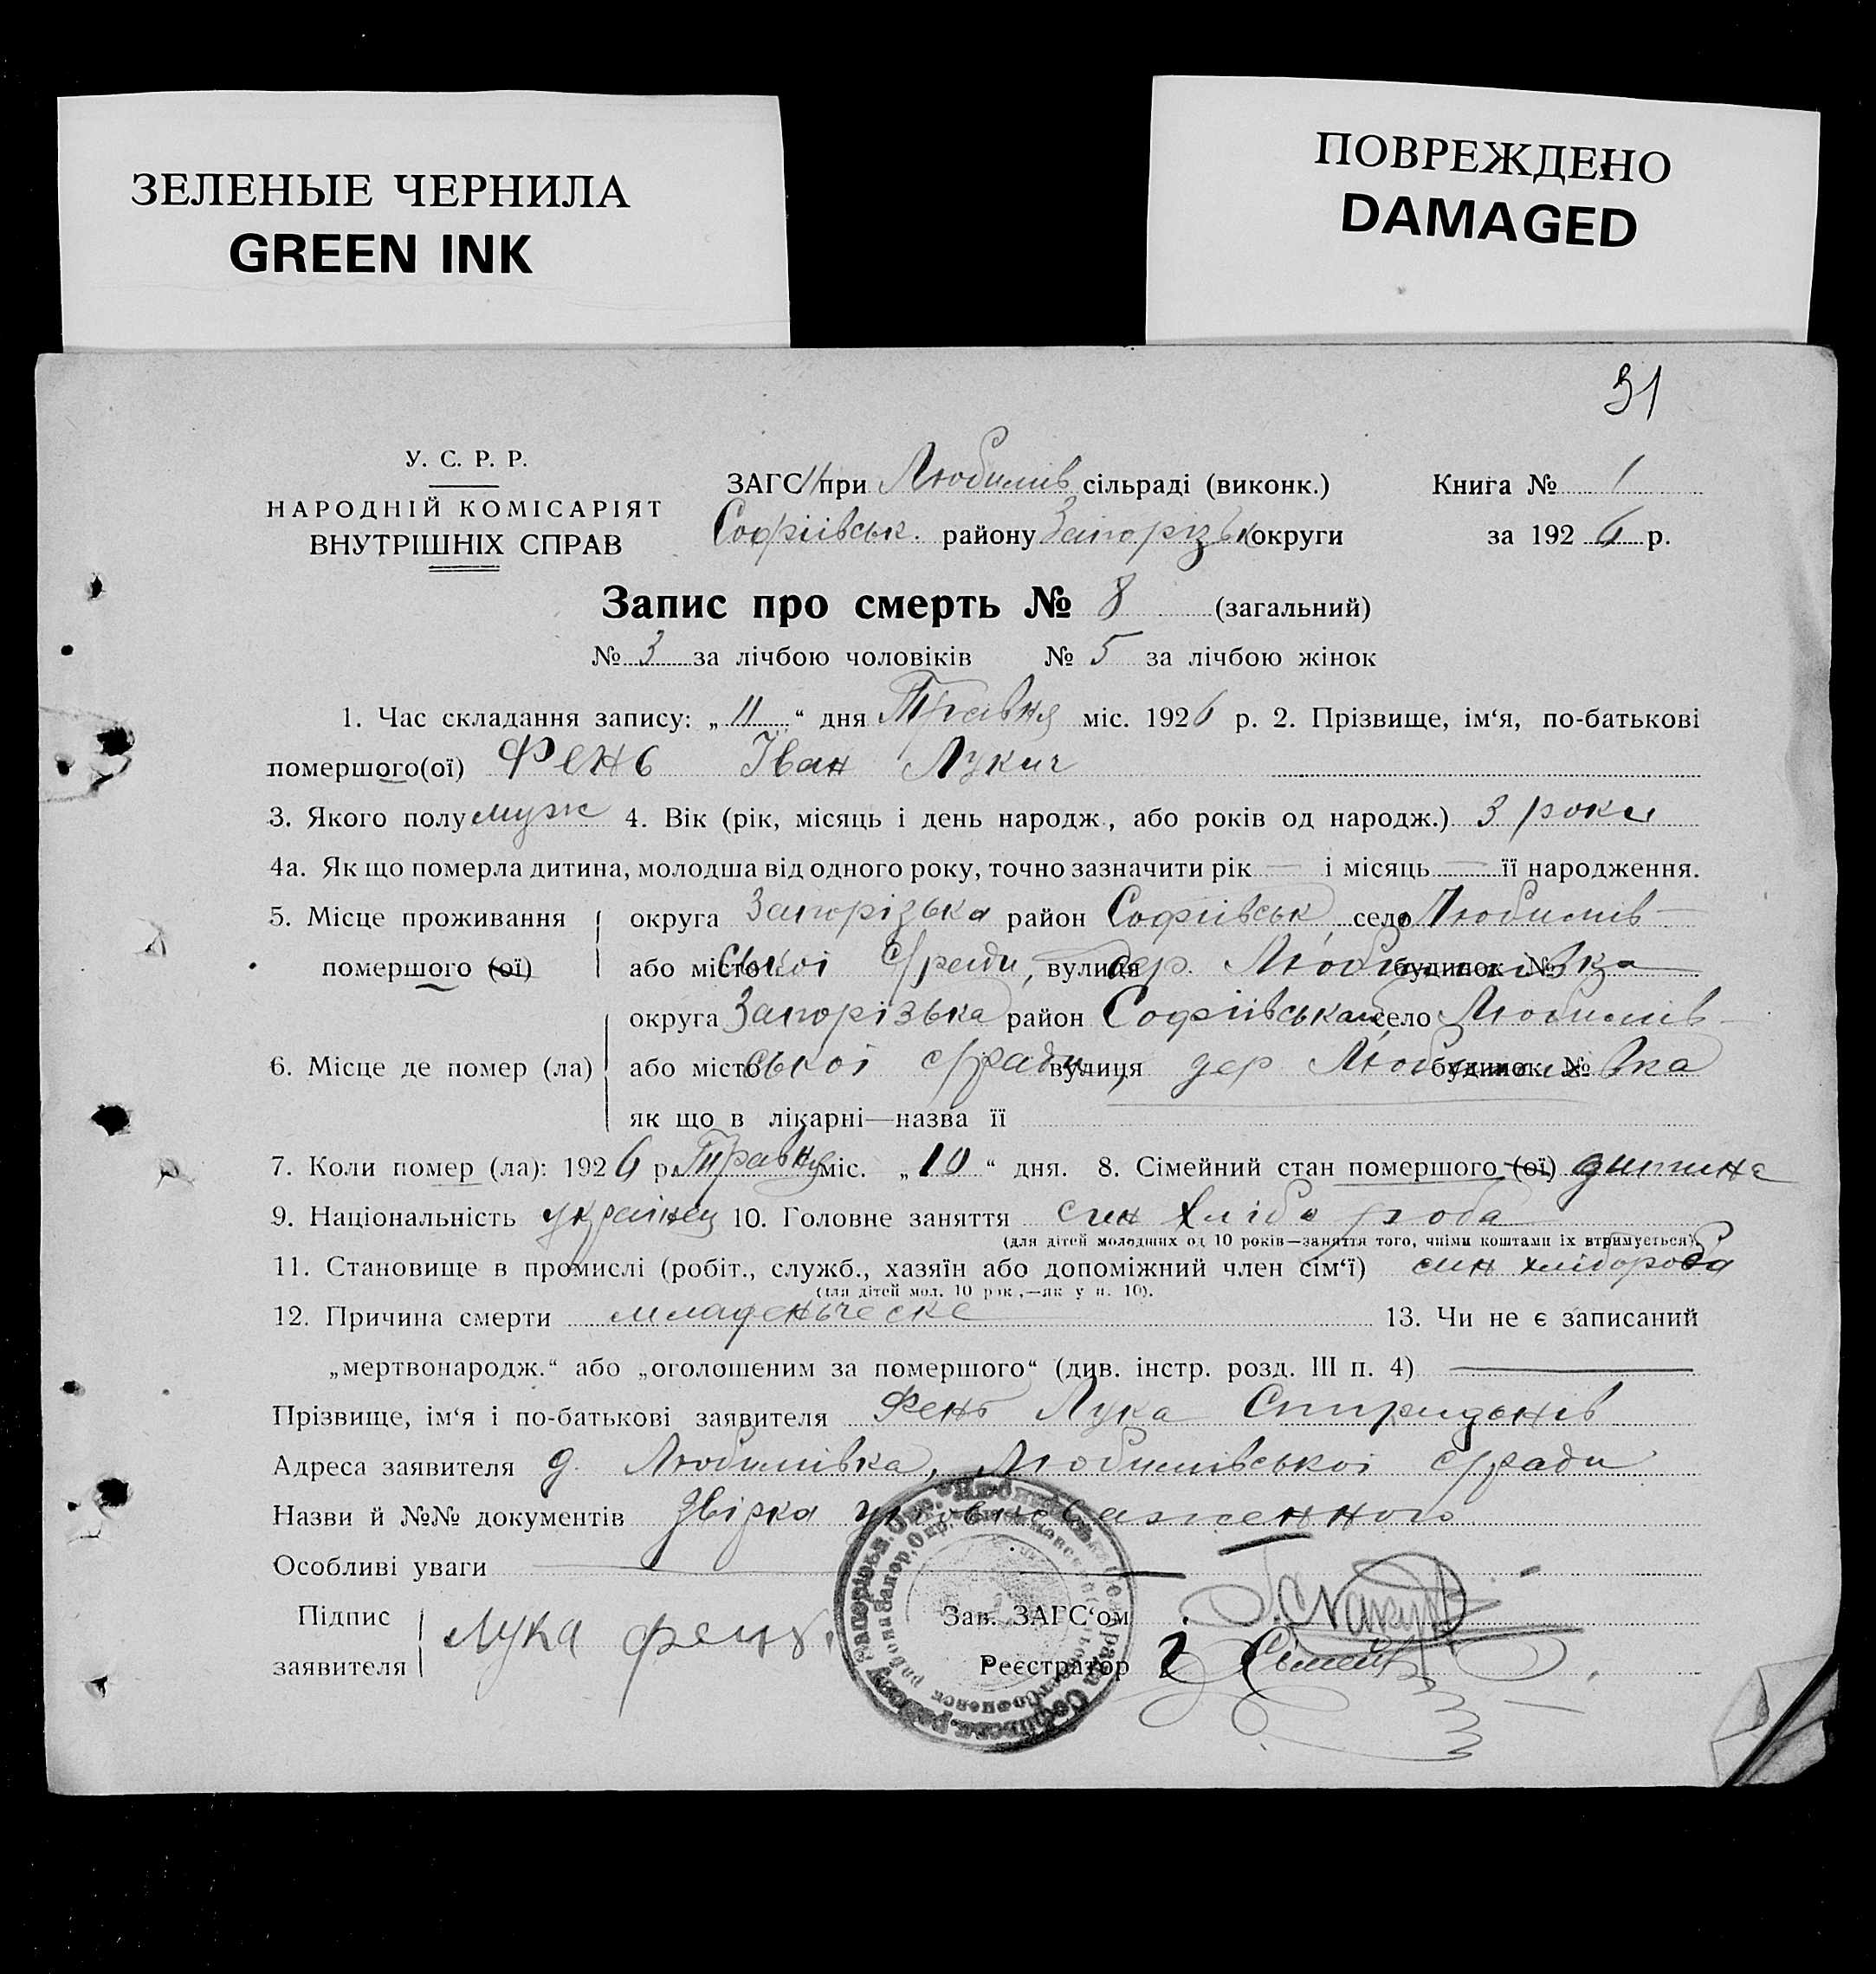 ЗЕЛЕНЫЕ ЧЕРНИЛА
GREEN INK
ПОВРЕЖДЕНО
DAMAGED
31
У. С. Р. Р.
НАРОДНІЙ КОМІСАРІЯТ
ВНУТРІШНІХ СПРАВ
ЗАГС при Любимів сільраді (виконк.)
Софіївськ. району Запорізьк округи
Книга № 1
за 1926 р.
Запис про смерть № 8 (загальний)
№ 3 за лічбою чоловіків № 5 за лічбою жінок
1. Час складання запису: „11“ дня Травня міс. 1926 р. 2. Прізвище, ім‘я, по-батькові
помершого(ої) Фень Іван Лукич
3. Якого полу муж 4. Вік (рік, місяць і день народж., або років од народж.) 3 роки
4а. Як що померла дитина, молодша від одного року, точно зазначити рік — і місяць — її народження.
5. Місце проживання округа Запорізька район Софіївськ село Любимів-
помершого (ої) або місто ської с/ради, вулиця дер. Любимівка будинок №
округа Запорізька район Софіївський село Любимів-
6. Місце де помер (ла) або місто ської с/ради, вулиця дер Любимівка будинок №
як що в лікарні—назва її
7. Коли помер (ла): 1926 р. Травня міс. „10“ дня. 8. Сімейний стан помершого (ої) дитина
9. Національність українец 10. Головне заняття син хлібороба
(для дітей молодших од 10 років—заняття того, чиїми коштами їх втримується).
11. Становище в промислі (робіт., служб., хазяїн або допоміжний член сім‘ї) син хлібороба
(для дітей мол. 10 рок.,—як у п. 10).
12. Причина смерти младеньческе 13. Чи не є записаний
„мертвонародж.“ або „оголошеним за помершого“ (див. інстр. розд. III п. 4) —
Прізвище, ім‘я і по-батькові заявителя Фень Лука Спиридонів
Адреса заявителя д. Любимівка, Любимівської с/ради
Назви й №№ документів Звірка уповноваженного
Особливі уваги —
Підпис
заявителя Лука Фень.
Зав. ЗАГС‘ом
Реєстратор